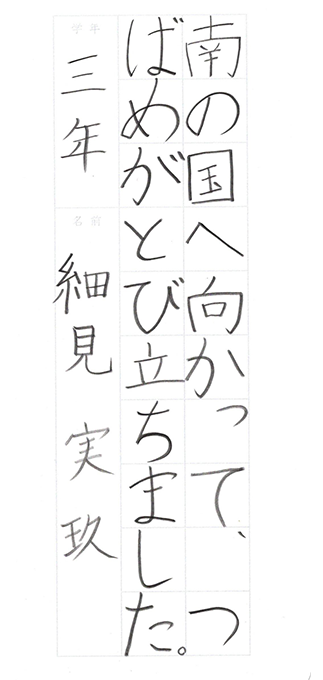 南の国へ向かって、つ
ばめがとび立ちました。
学年
三年
名前
細見 実玖